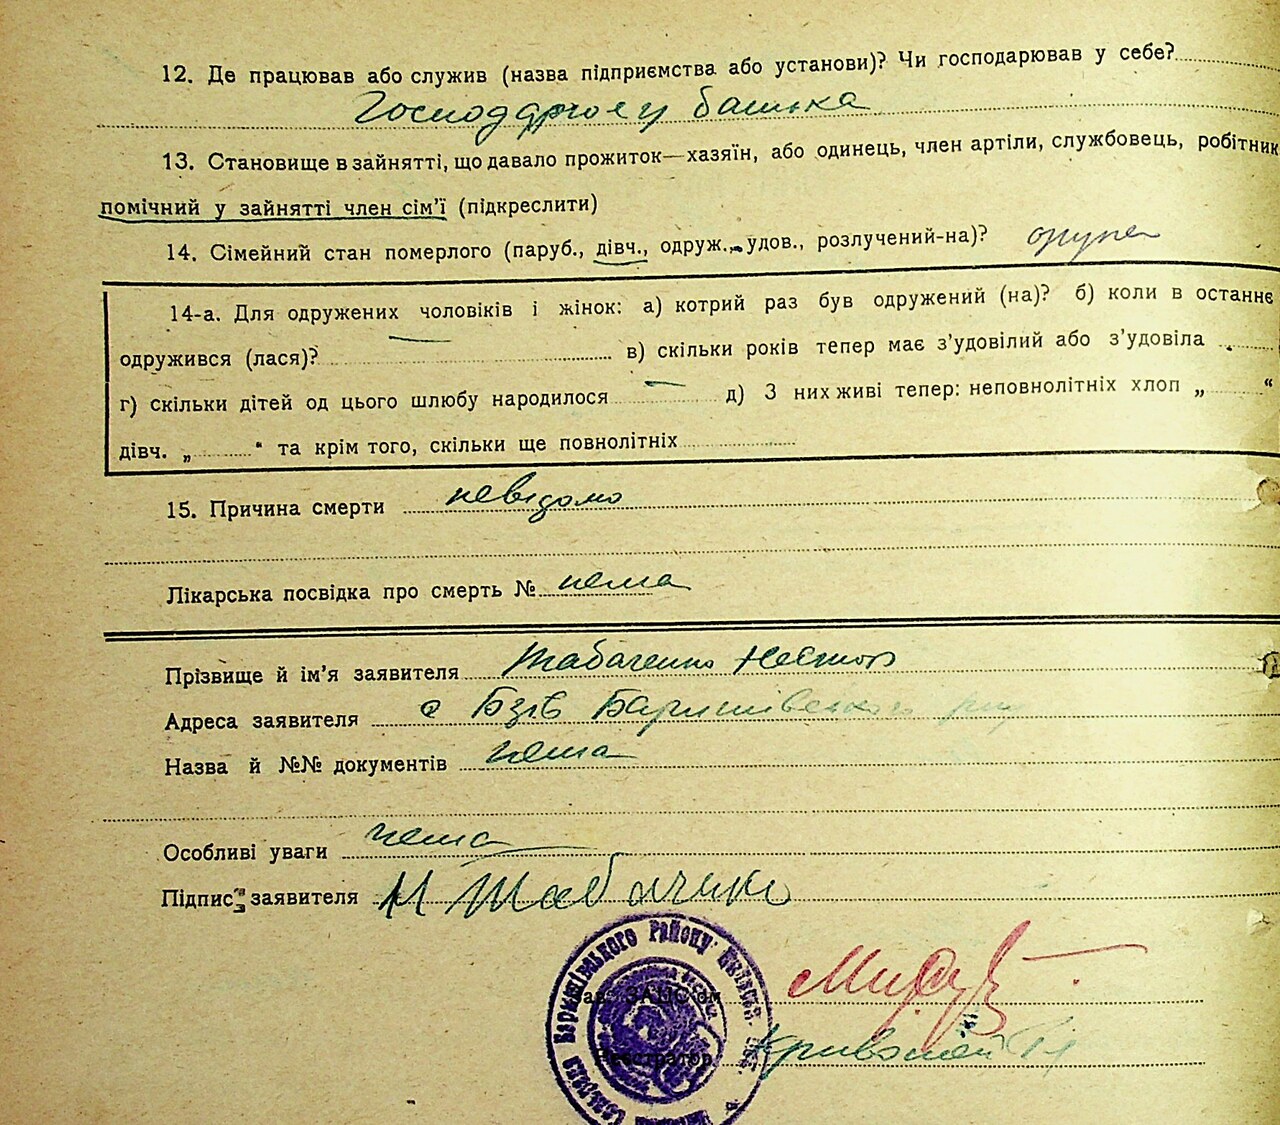 12. Де працював або служив (назва підприємства або установи)? Чи господарював у себе?
у батька
13. Становище в зайнятті, що давало прожиток—хазяїн, або одинець, член артіли, службовець, робітник
помічний у зайнятті член сім'ї (підкреслити)
14. Сімейний стан померлого (паруб., дівч., одруж., удов., розлучений-на)?
14-а. Для одружених чоловіків і жінок: а) котрий раз був одружений (на)? б) коли в останнє
одружився (лася)? в) скільки років тепер має з'удовілий або з'удовіла
г) скільки дітей од цього шлюбу народилося — д) З них живі тепер: неповнолітніх хлоп „ “
дівч. „ “ та крім того, скільки ще повнолітніх
15. Причина смерти невідомо
Лікарська посвідка про смерть № нема
Прізвище й ім'я заявителя Табаченко Нестор
Адреса заявителя с Бзів Баришівського р-ну
Назва й №№ документів нема
Особливі уваги нема
Підпис заявителя Н Табаченко
Зав. ЗАЦС'ом
Реєстратор
району